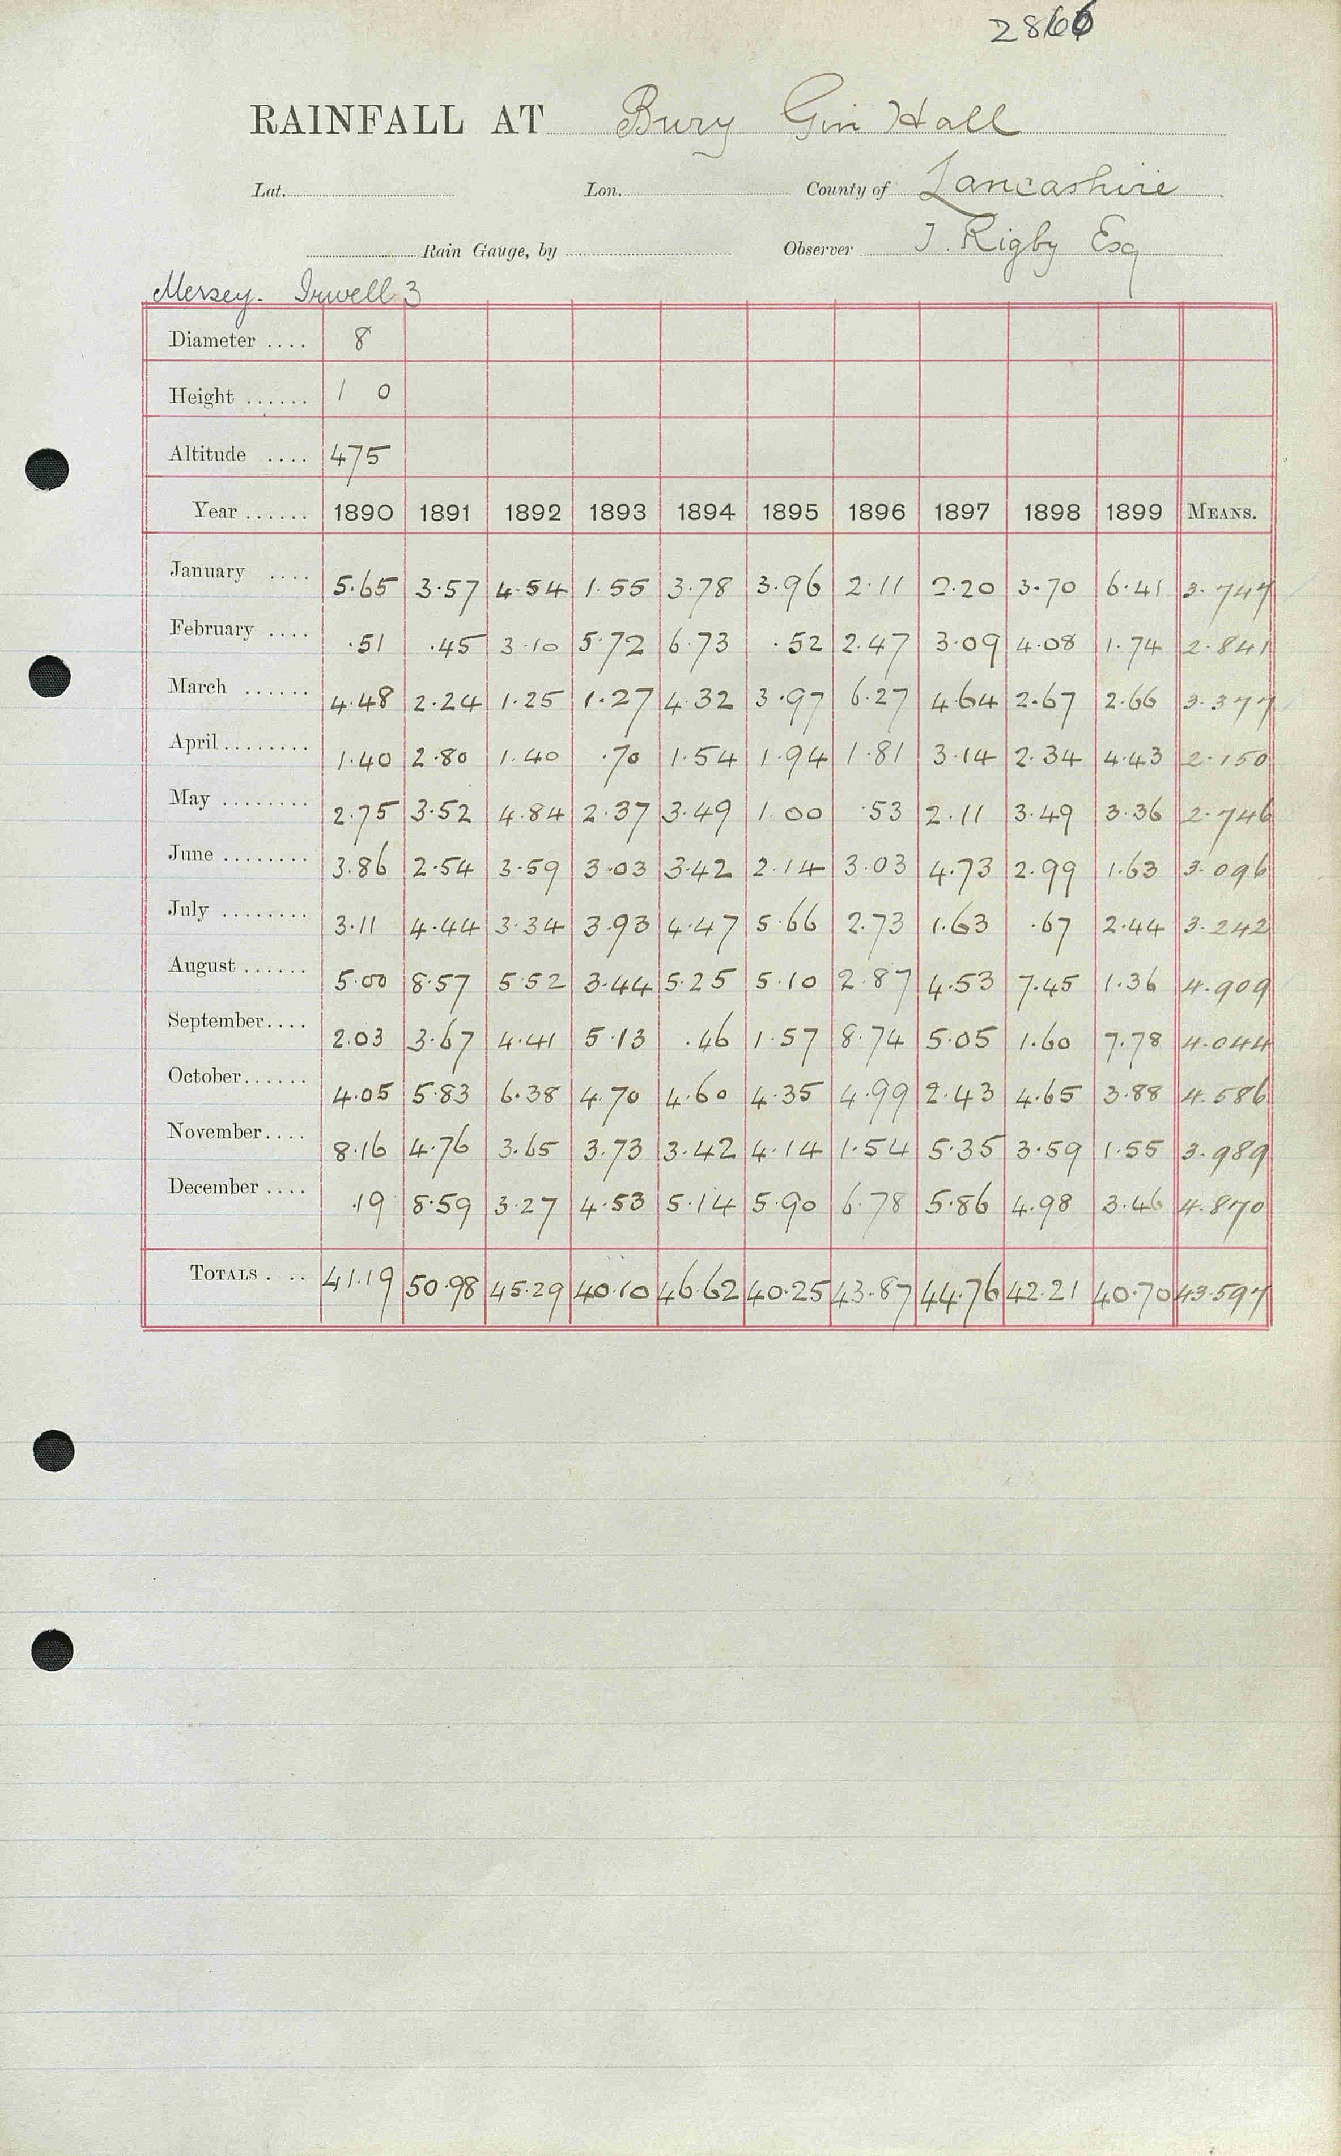 2866
RAINFALL AT Bury Gin Hall
Lat. Lon. County of Lancashire
Rain Gauge, by Observer J. Rigby Esq
Mersey. Irwell 3
Diameter .... 8
Height ...... 1 0
Altitude .... 475
Year ...... 1890 1891 1892 1893 1894 1895 1896 1897 1898 1899 MEANS.
January .... 5.65 3.57 4.54 1.55 3.78 3.96 2.11 2.20 3.70 6.41 3.747
February .... .51 .45 3.10 5.72 6.73 .52 2.47 3.09 4.08 1.74 2.841
March ...... 4.48 2.24 1.25 1.27 4.32 3.97 6.27 4.64 2.67 2.66 3.377
April ........ 1.40 2.80 1.40 .70 1.54 1.94 1.81 3.14 2.34 4.43 2.150
May ........ 2.75 3.52 4.84 2.37 3.49 1.00 .53 2.11 3.49 3.36 2.746
June ........ 3.86 2.54 3.59 3.03 3.42 2.14 3.03 4.73 2.99 1.63 3.096
July ........ 3.11 4.44 3.34 3.93 4.47 5.66 2.73 1.63 .67 2.44 3.242
August ...... 5.00 8.57 5.52 3.44 5.25 5.10 2.87 4.53 7.45 1.36 4.909
September.... 2.03 3.67 4.41 5.13 .46 1.57 8.74 5.05 1.60 7.78 4.044
October...... 4.05 5.83 6.38 4.70 4.60 4.35 4.99 2.43 4.65 3.88 4.586
November.... 8.16 4.76 3.65 3.73 3.42 4.14 1.54 5.35 3.59 1.55 3.989
December .... .19 8.59 3.27 4.53 5.14 5.90 6.78 5.86 4.98 3.46 4.870
TOTALS . .. 41.19 50.98 45.29 40.10 46.62 40.25 43.87 44.76 42.21 40.70 43.597